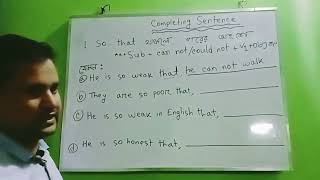 Completing Sentence
1 So that থাকলে পরের অংশে
*** Sub + can not/could not + V1 + Obj
যেমন :
(a) He is so weak that he can not walk
(b) They are so poor that,
(c) He is so weak in English that,
(d) He is so honest that,